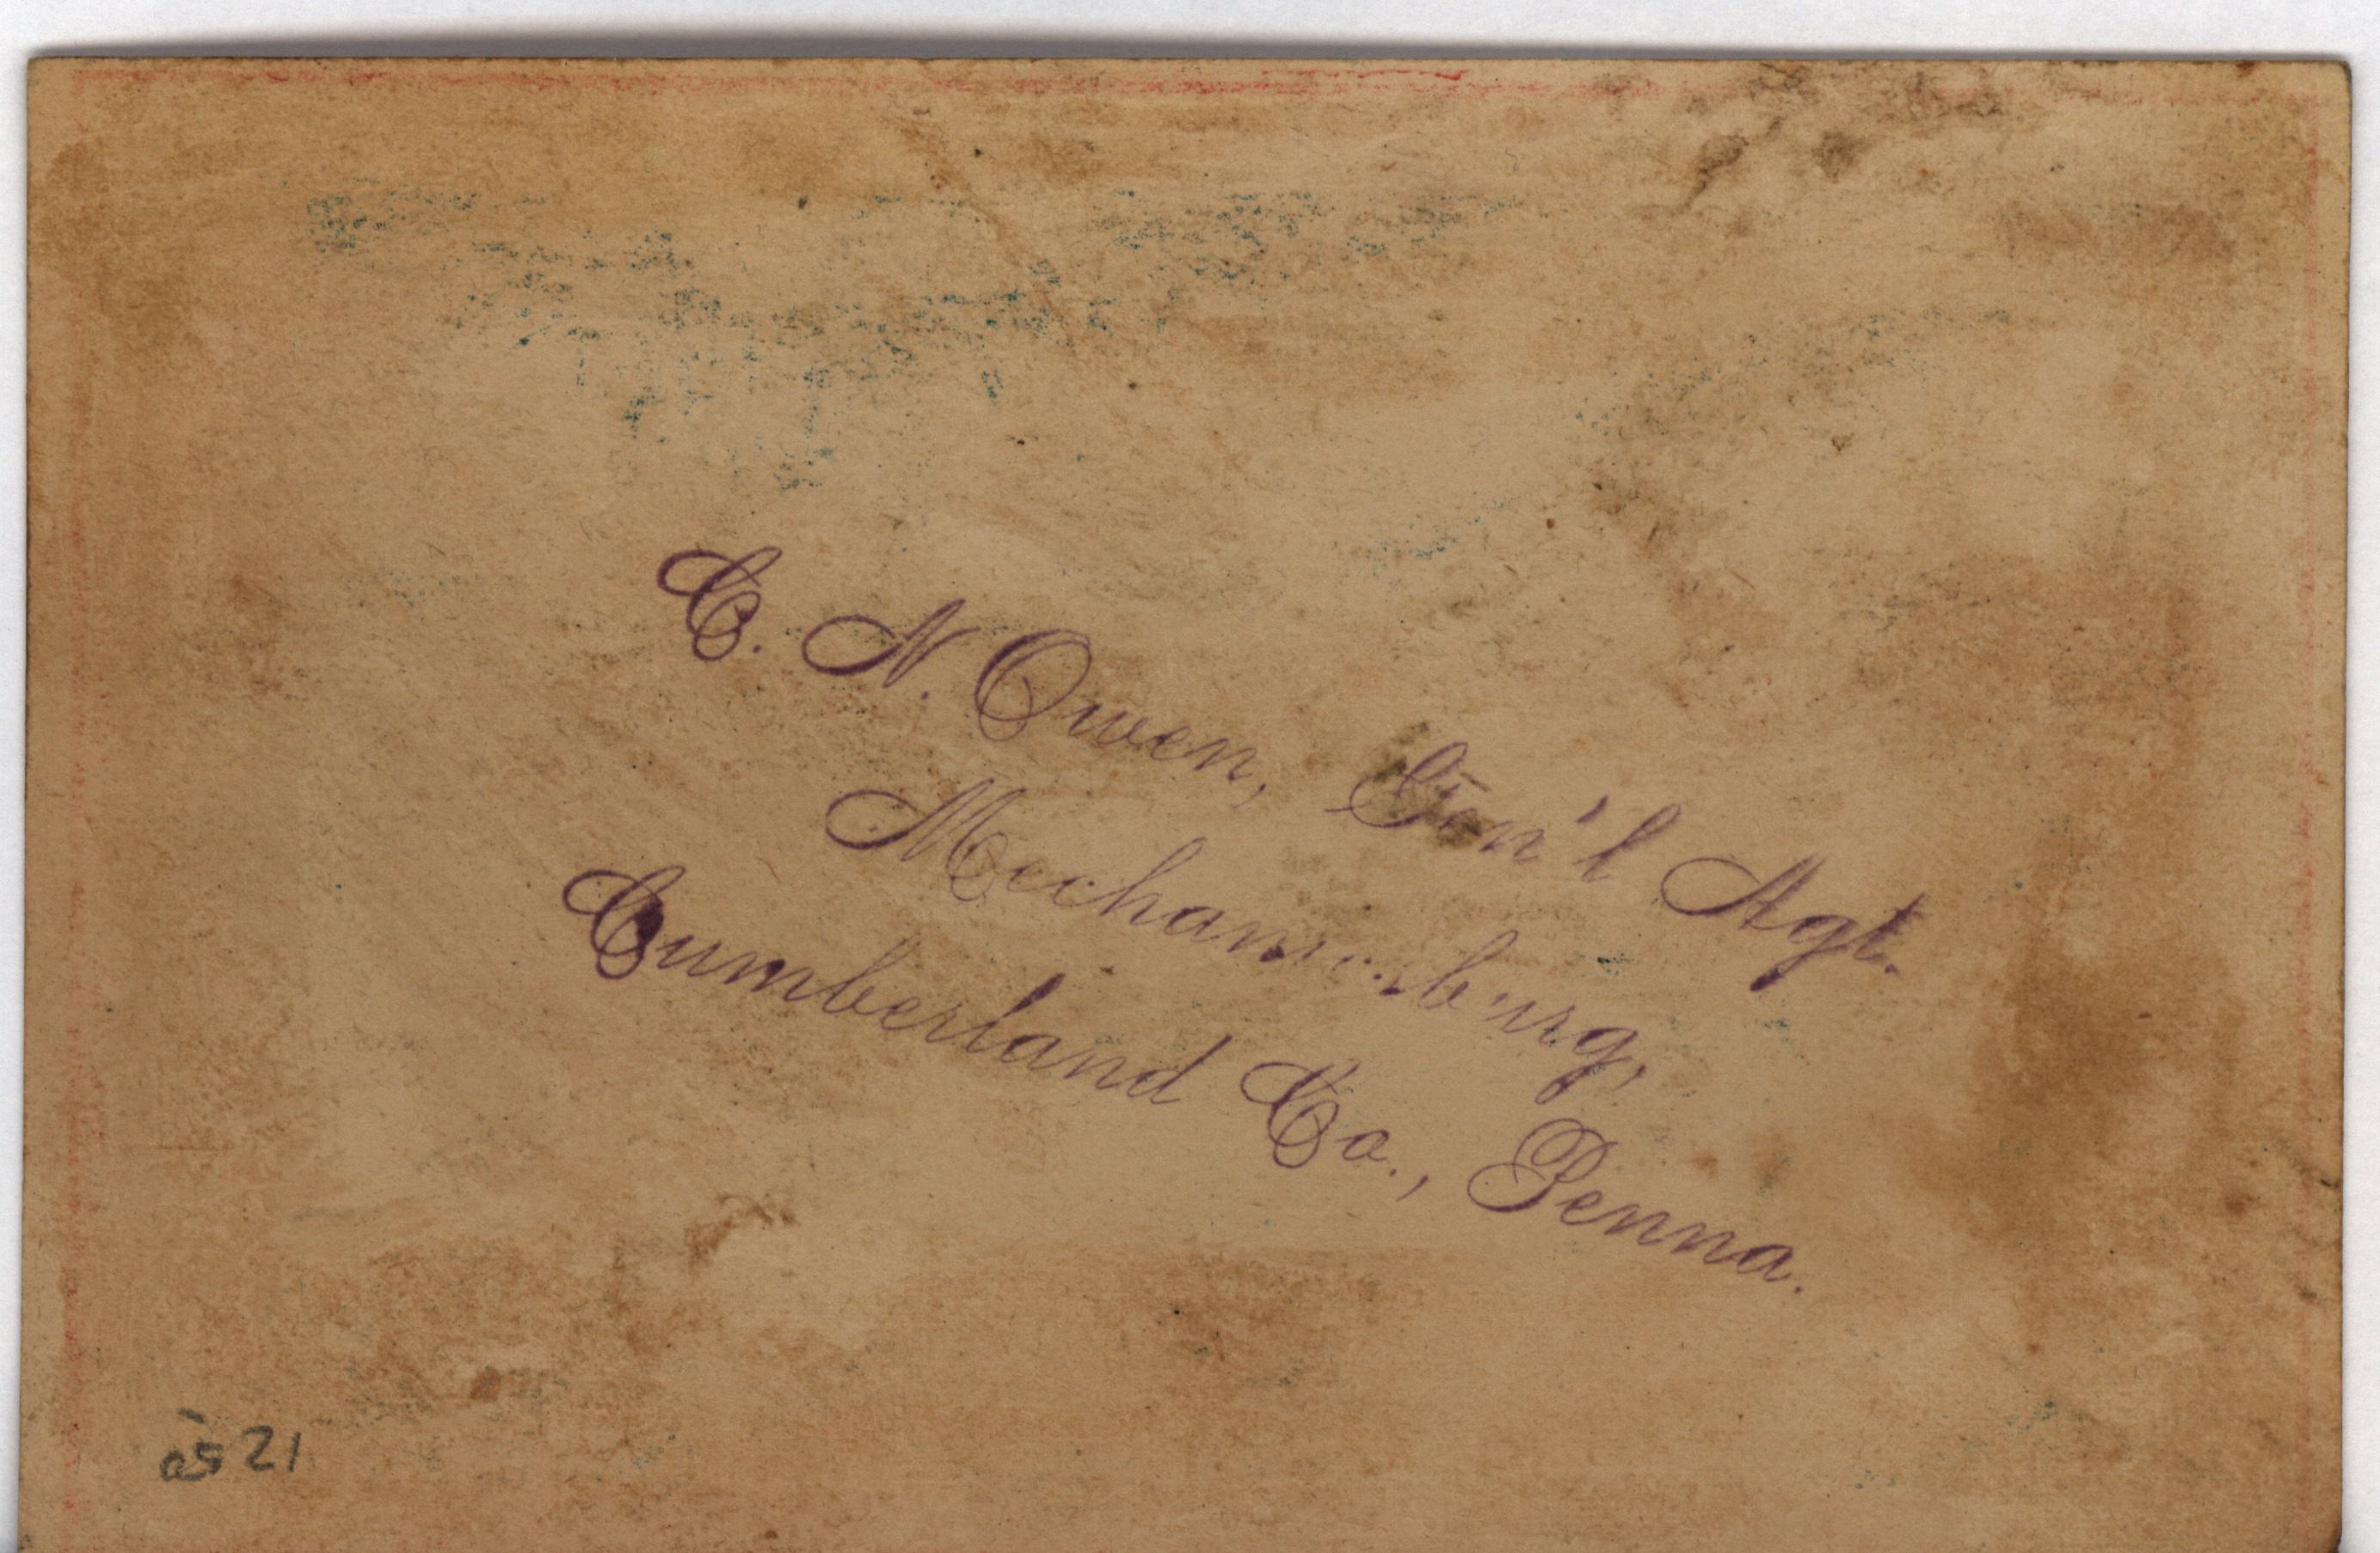 C. N. Owen, Gen'l Agt.
Mechanicsburg,
Cumberland Co., Penna.
21